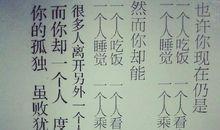 也许你现在仍是
一个人吃饭 一个人看
一个人睡觉 一个人乘
然而你却能
一个人吃饭 一个人看
一个人睡觉 一个人乘
很多人离开另外一个人
而你却一个人 度
你的孤独，虽败犹